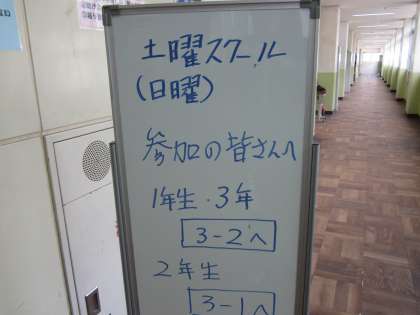 土曜スクール
(日曜)
参加の皆さんへ
1年生・3年
3-2へ
2年生
3-1へ